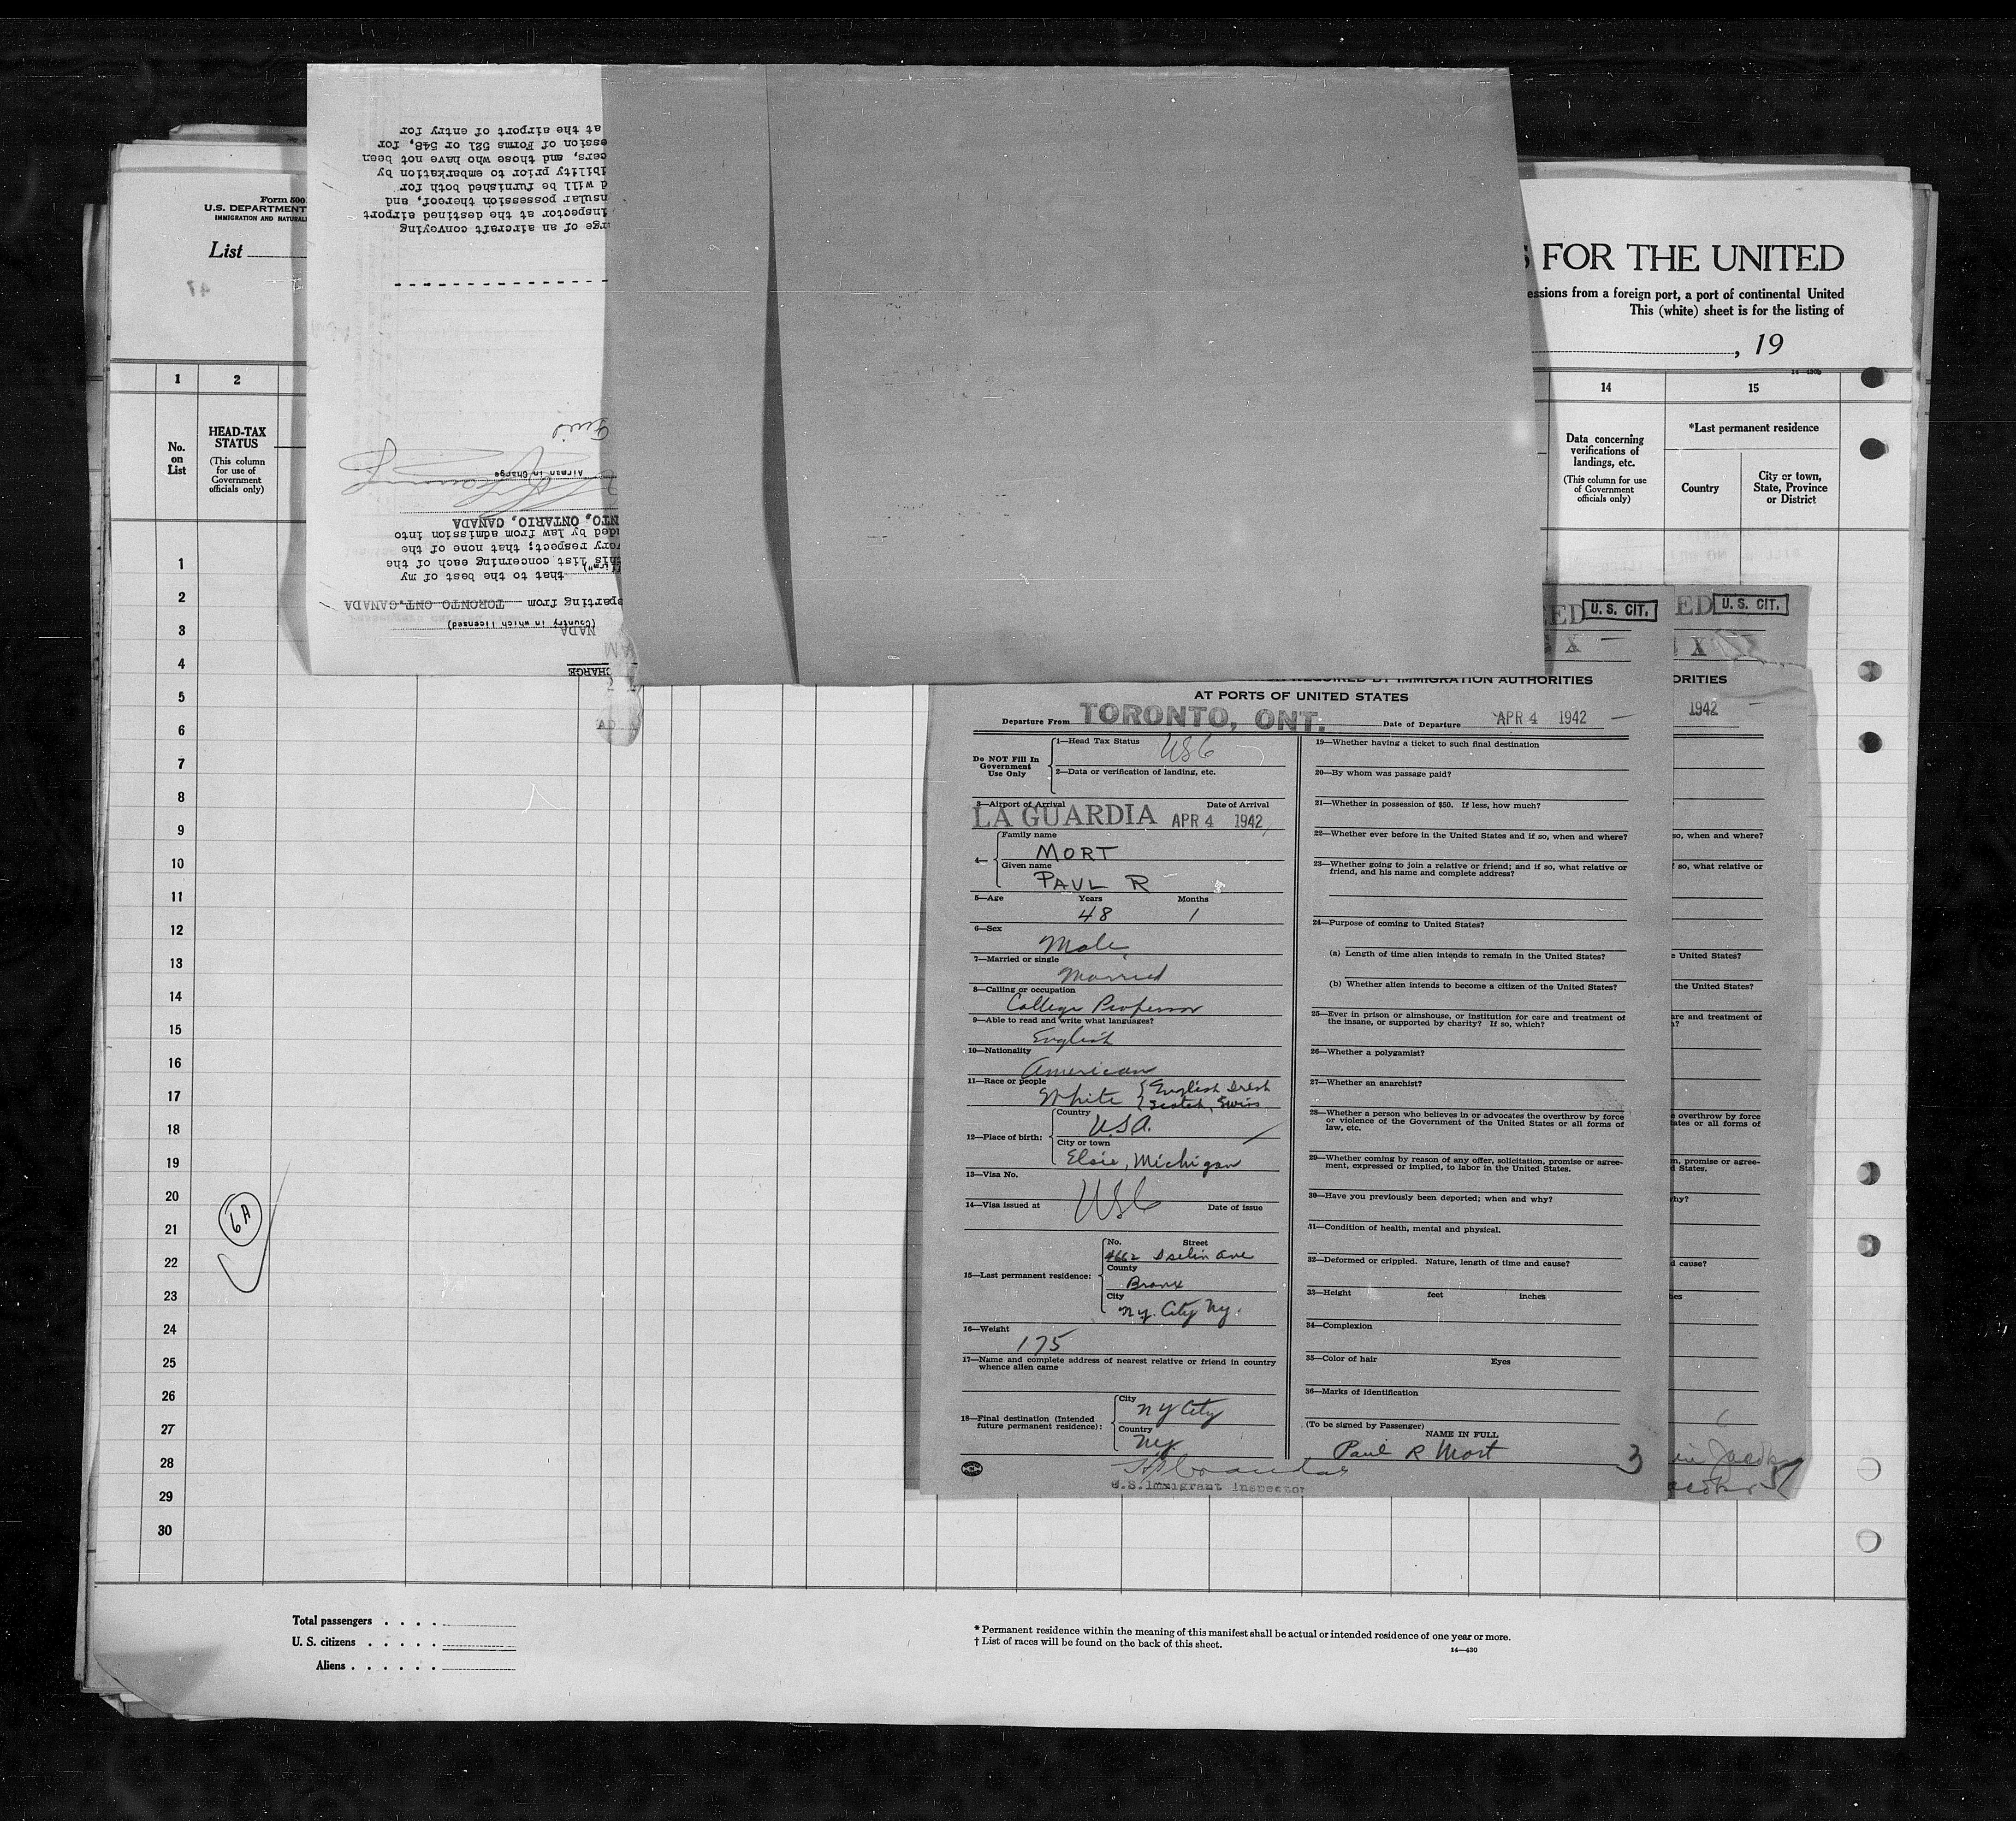 at the airport of entry for
ession of Forms 521 or 548, for
cers, and those who have not been
ibility prior to embarkation by
d will be furnished both for
nsular possession thereof, and
inspector at the destined airport
rge of an aircraft conveying
Airman in Charge
NTO, ONTARIO, CANADA
ded by law from admission into
ery respect; that none of the
this list concerning each of the
that to the best of my
eparting from TORONTO ONT. CANADA
(Country in which licensed)
NADA
CHARGE
Form 500
U.S. DEPARTMENT
IMMIGRATION AND NATURAL
List
47
S FOR THE UNITED
essions from a foreign port, a port of continental United
This (white) sheet is for the listing of
, 19
14—430b
1 2 14 15
No.
on
List
HEAD-TAX
STATUS
(This column
for use of
Government
officials only)
Data concerning
verifications of
landings, etc.
(This column for use
of Government
officials only)
*Last permanent residence
Country
City or town,
State, Province
or District
1
2
3
4
5
6
7
8
9
10
11
12
13
14
15
16
17
18
19
20
21
22
23
24
25
26
27
28
29
30
6A
ED U. S. CIT.
X
REQUIRED BY IMMIGRATION AUTHORITIES
AT PORTS OF UNITED STATES
Departure From TORONTO, ONT. Date of Departure APR 4 1942
Do NOT Fill In
Government
Use Only
1—Head Tax Status USC
2—Data or verification of landing, etc.
3—Airport of Arrival Date of Arrival
LA GUARDIA APR 4 1942
4— Family name
MORT
Given name
PAUL R
5—Age Years Months
48 1
6—Sex
Male
7—Married or single
Married
8—Calling or occupation
College Professor
9—Able to read and write what languages?
English
10—Nationality
American
11—Race or people
White { English Irish
Scotch, Swiss
12—Place of birth: Country
U.S.A.
City or town
Elsie, Michigan
13—Visa No.
14—Visa issued at USC Date of issue
15—Last permanent residence: No. Street
4662 Iselin Ave
County
Bronx
City
N.Y. City N.Y.
16—Weight
175
17—Name and complete address of nearest relative or friend in country
whence alien came
18—Final destination (Intended
future permanent residence):
City
N Y City
Country
NY
U.S.Immigrant Inspector
19—Whether having a ticket to such final destination
20—By whom was passage paid?
21—Whether in possession of $50. If less, how much?
22—Whether ever before in the United States and if so, when and where?
23—Whether going to join a relative or friend; and if so, what relative or
friend, and his name and complete address?
24—Purpose of coming to United States?
(a) Length of time alien intends to remain in the United States?
(b) Whether alien intends to become a citizen of the United States?
25—Ever in prison or almshouse, or institution for care and treatment of
the insane, or supported by charity? If so, which?
26—Whether a polygamist?
27—Whether an anarchist?
28—Whether a person who believes in or advocates the overthrow by force
or violence of the Government of the United States or all forms of
law, etc.
29—Whether coming by reason of any offer, solicitation, promise or agree-
ment, expressed or implied, to labor in the United States.
30—Have you previously been deported; when and why?
31—Condition of health, mental and physical.
32—Deformed or crippled. Nature, length of time and cause?
33—Height feet inches
34—Complexion
35—Color of hair Eyes
36—Marks of identification
(To be signed by Passenger)
NAME IN FULL
Paul R Mort
3
ED U. S. CIT.
X
ORITIES
1942
so, when and where?
f so, what relative or
e United States?
the United States?
are and treatment of
e overthrow by force
tates or all forms of
n, promise or agree-
d States.
hy?
d cause?
hes
Total passengers
U. S. citizens
Aliens
* Permanent residence within the meaning of this manifest shall be actual or intended residence of one year or more.
† List of races will be found on the back of this sheet.
14—430